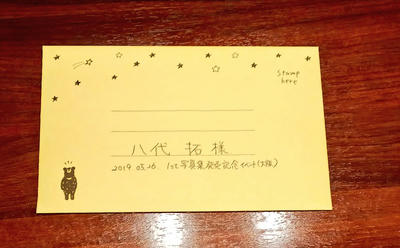 Stamp
here
八代 拓 様
2019.05.26. 1st写真集発売記念イベント(大阪)